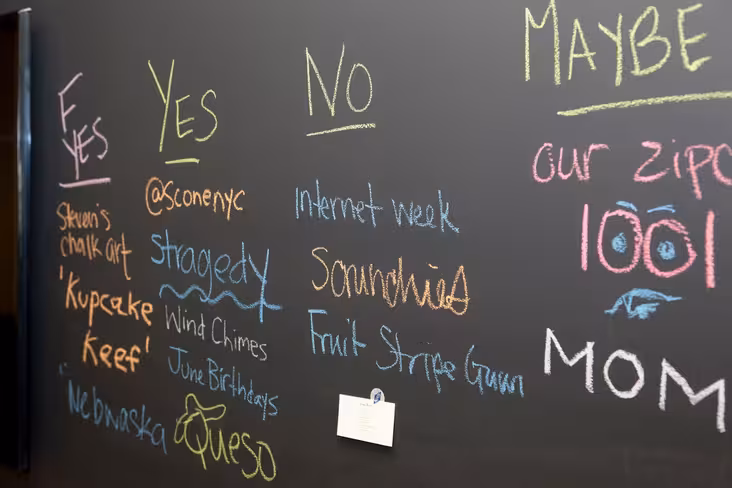 F
YES
Steven's
chalk art
'Kupcake
Keef'
Nebwaska
YES
@sconenyc
stragedy
Wind Chimes
June Birthdays
Queso
NO
Internet week
Scrunchies
Fruit Stripe Gum
MAYBE
our zipc
1001
MOM